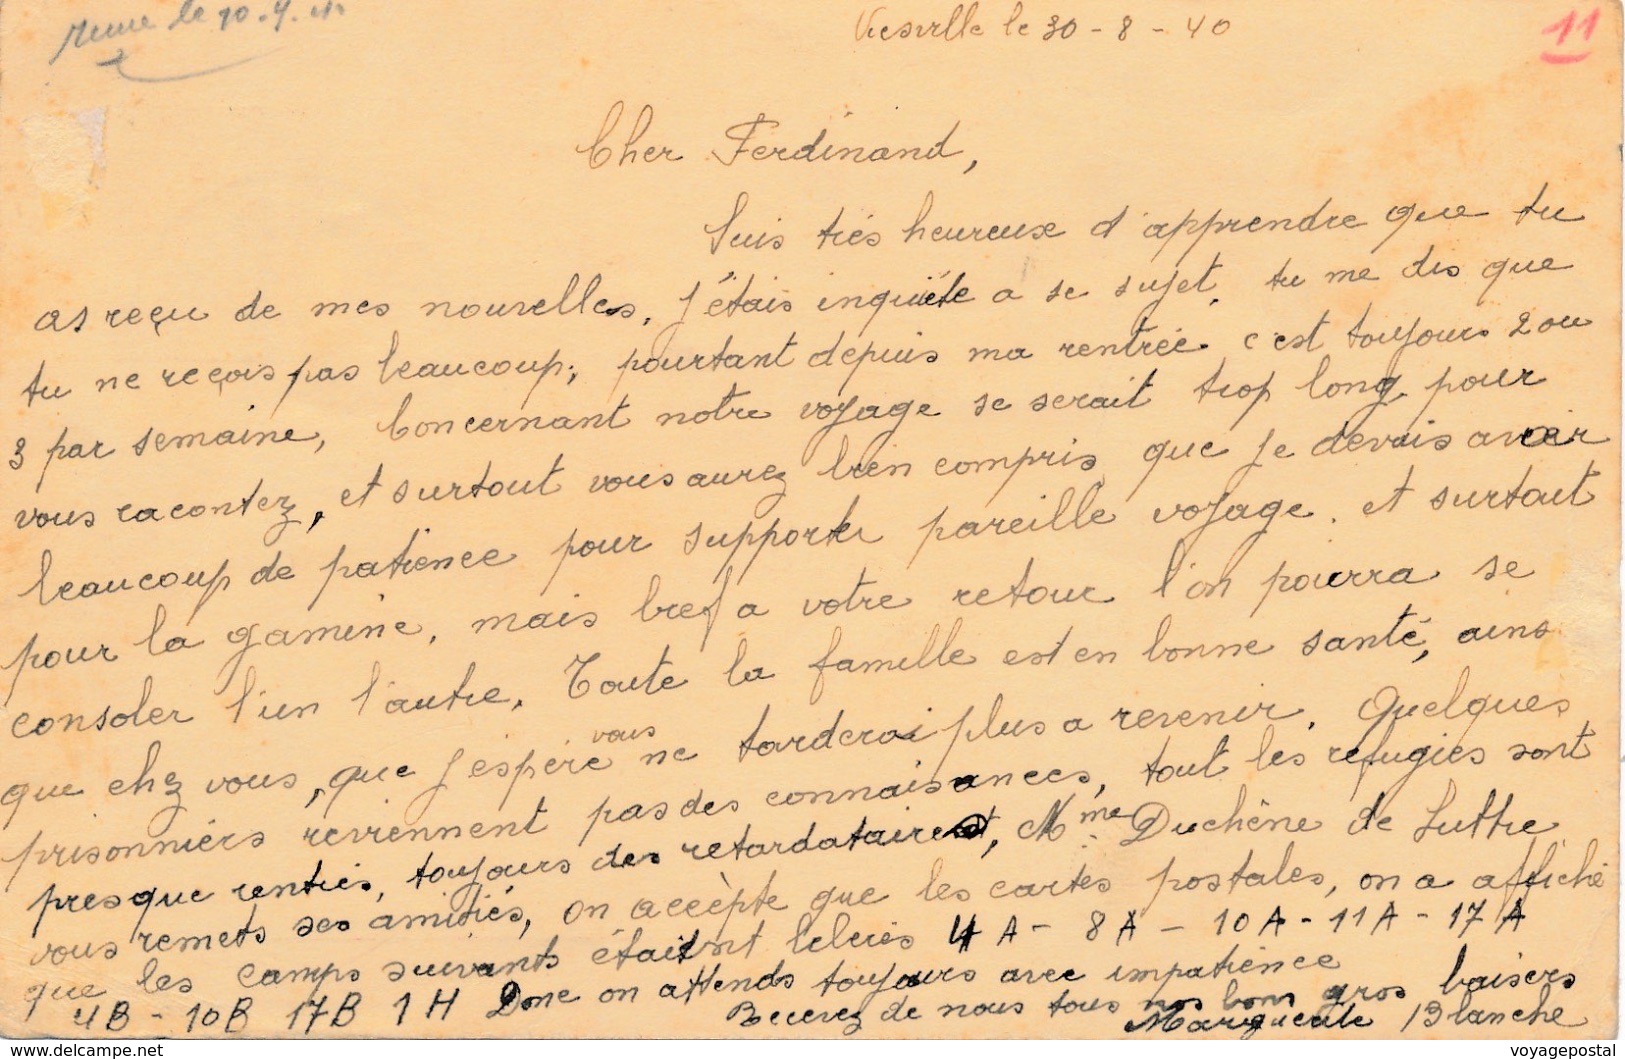 le 10.9.
Viesville le 30-8-40
11
Cher Ferdinand,
Suis très heureuse d'apprendre que tu
as reçu de mes nouvelles, J'étais inquiète a se sujet, tu me dis que
tu ne reçois pas beaucoup; pourtant depuis ma rentrée c'est toujours 2 ou
3 par semaine, Concernant notre voyage se serait trop long pour
vous racontez, et surtout vous aurez bien compris que Je devais avoir
beaucoup de patience pour supporter pareille voyage. et surtout
pour la gamine, mais bref a votre retour l'on pourra se
consoler l'un l'autre. Toute la famille est en bonne santé, ains
que chez vous, que J'espère vous ne tarderai plus a revenir. Quelques
prisonniers reviennent pas des connaisances, tout les réfugies sont
presque rentrés, toujours des retardataires, Mme Duchêne de Luttre
vous remets ses amitiés, on accèpte que les cartes postales, on a affiché
que les camps suivants étaient libérés 4A - 8A - 10A - 11A - 17A
4B - 10B 17B 1H Donc on attends toujours avec impatience
Recevez de nous tous nos bons gros baisers
Marguerite Blanche
voyagepostal
delcampe.net